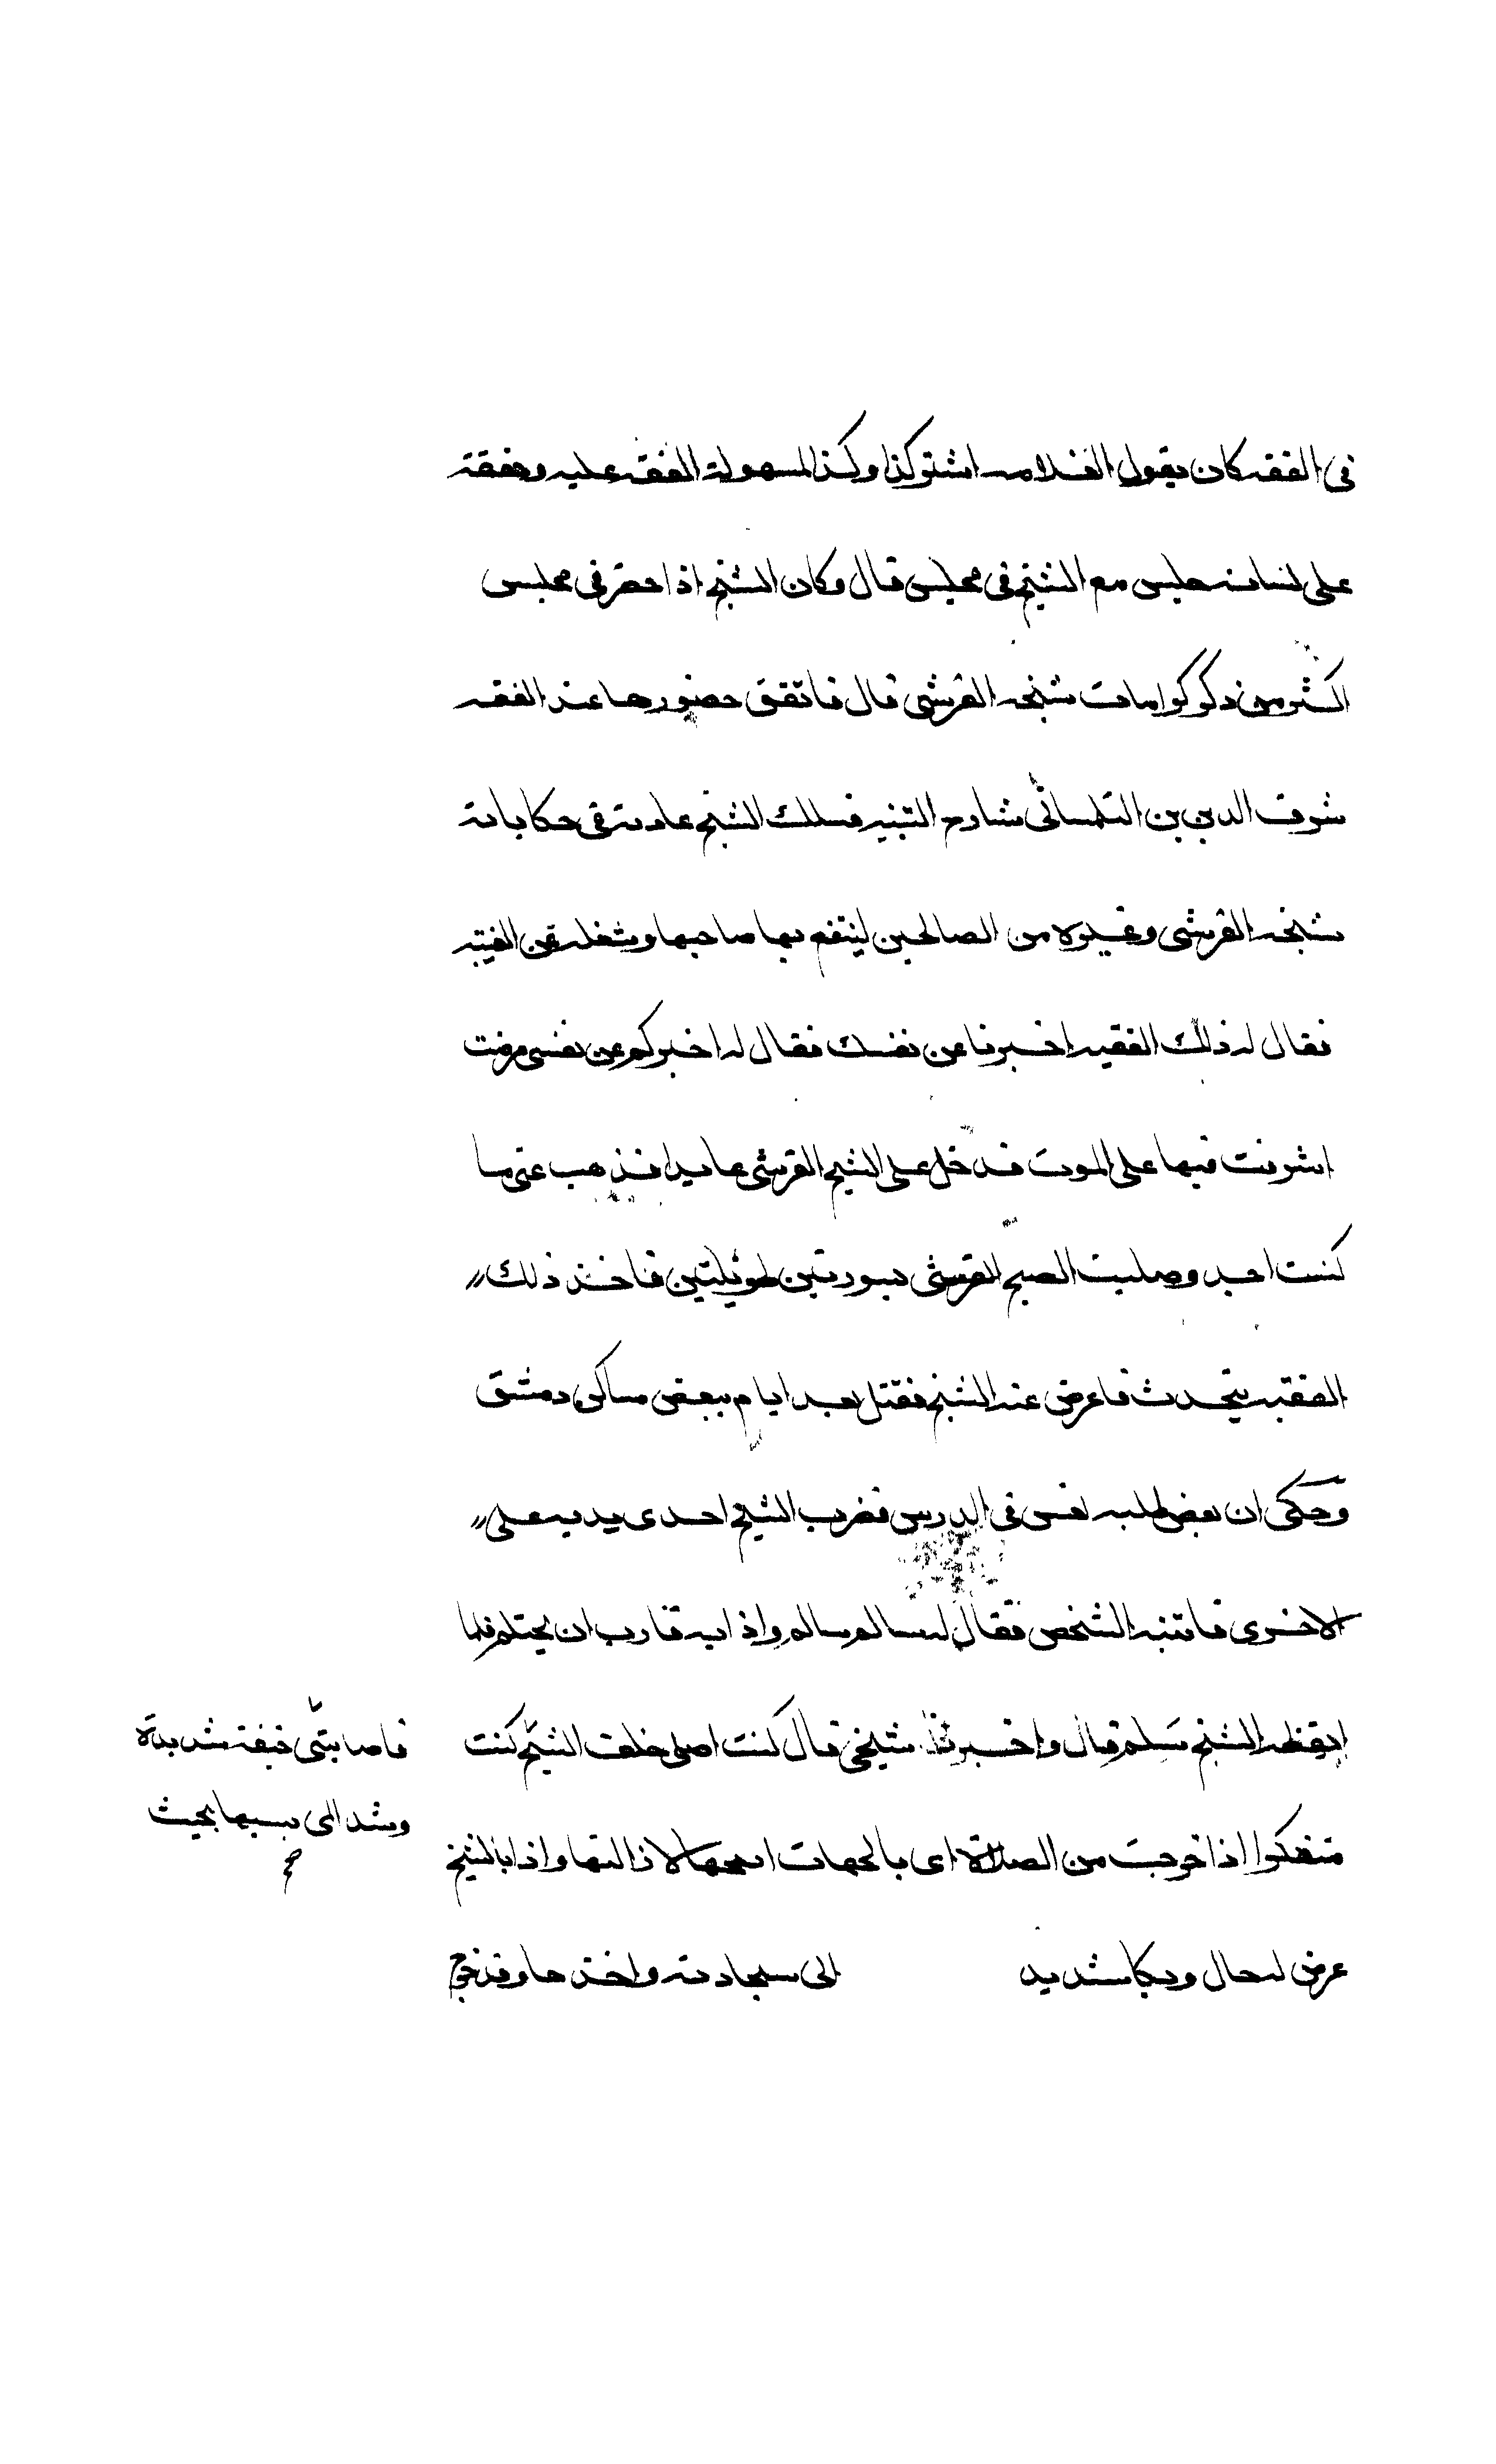 في الفقه كان يقول الغلامه اشتركذا وكذا لسهولة الفقه عليه وخفته
على لسانه جلس مع الشيخ في مجلس قال وكان الشيخ اذا حضر في مجلس
اكثر من ذكر كرامات شيخه القرشي قال فاتفق حضورها عند الفقيه
شرف الدين بن التلمساني شارح التنبيه فسلك الشيخ عادته في حكاياته
شيخه القرشي وغيره من الصالحين لينتفع بها صاحبها ويشغله عن الغيبه
فقال له ذلك الفقيه اخبرنا عن نفسك فقال له اخبركم عن نفسي مرضت
اشرفت فيها على الموت فدخل على الشيخ القرشي عايدا فذهب عني ما
كنت اجد وصليت الصبح القرشي بسورتين طويلتين فاخذ ذلك
الفقيه يتحدث فاعرض عنه الشيخ فقتل بعد ايام ببعض مساكن دمشق
وحكى ان بعض طلبه نعس في الدرس فضرب الشيخ احدى يديه على
الاخرى فانتبه الشخص فقال له سالم سالم واذا به قارب ان يحتلم فلما
ايقظه الشيخ سلم قال واخبرنا شيخي قال كنت اصلي خلف الشيخ كنت
متفكرا اذا خرجت من الصلاة اي بالجهات لازالتها واذا بالشيخ
عرض له حال وبكا شديد الى سجادته واخذها وقد خرج
فاصابتني خيفة شديدة
وشد الى بسببها بحيث
صح